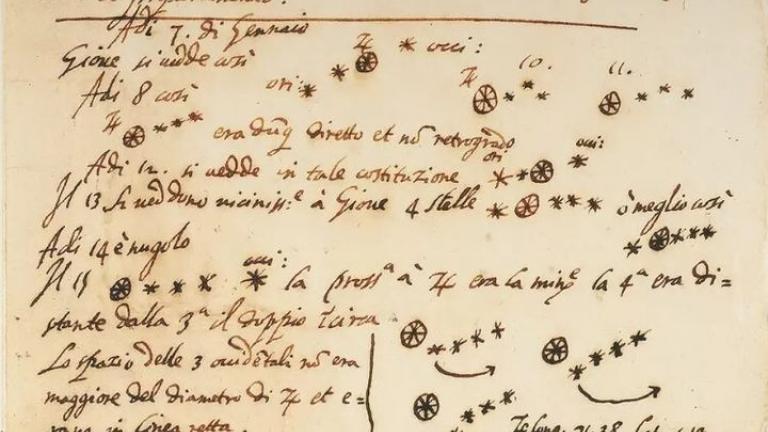 Adi 7. di Gennaio
Gioue si uedde così ori: occi:
Adi 8 così 10. 11.
era dūq diretto et nō retrogrado
Adi 12. si uedde in tale costituzione ori occi:
Il 13 si ueddono uiciniss.e à Gioue 4 stelle ò meglio così
Adi 14 è nugolo
Il 15 occi: la pross.a à ♃ era la min.e la 4.a era di=
stante dalla 3.a il doppio circa
Lo spazio delle 3 occidētali nō era
maggiore del diametro di ♃ et e=
rano in linea retta.